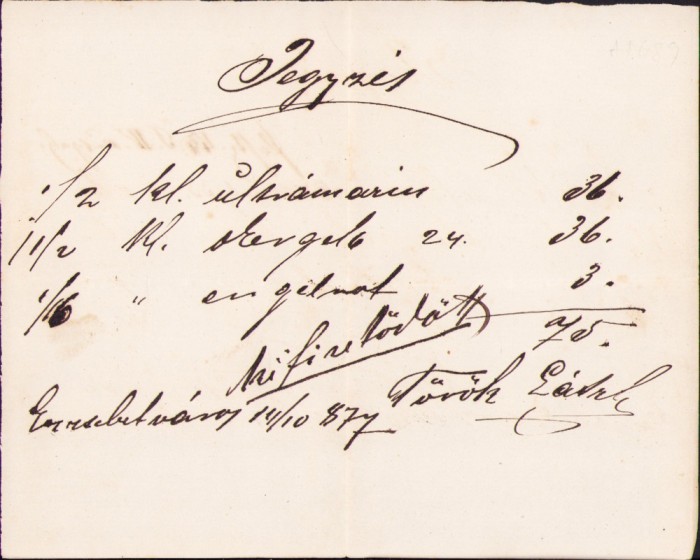 Jegyzés
1/2 kl. ultrámarin 36.
1 1/2 kl. okergelb 24. 36.
1/16 " engelrot 3.
75.
kifizetődött
Erzsebetváros 14/10 877 Török László